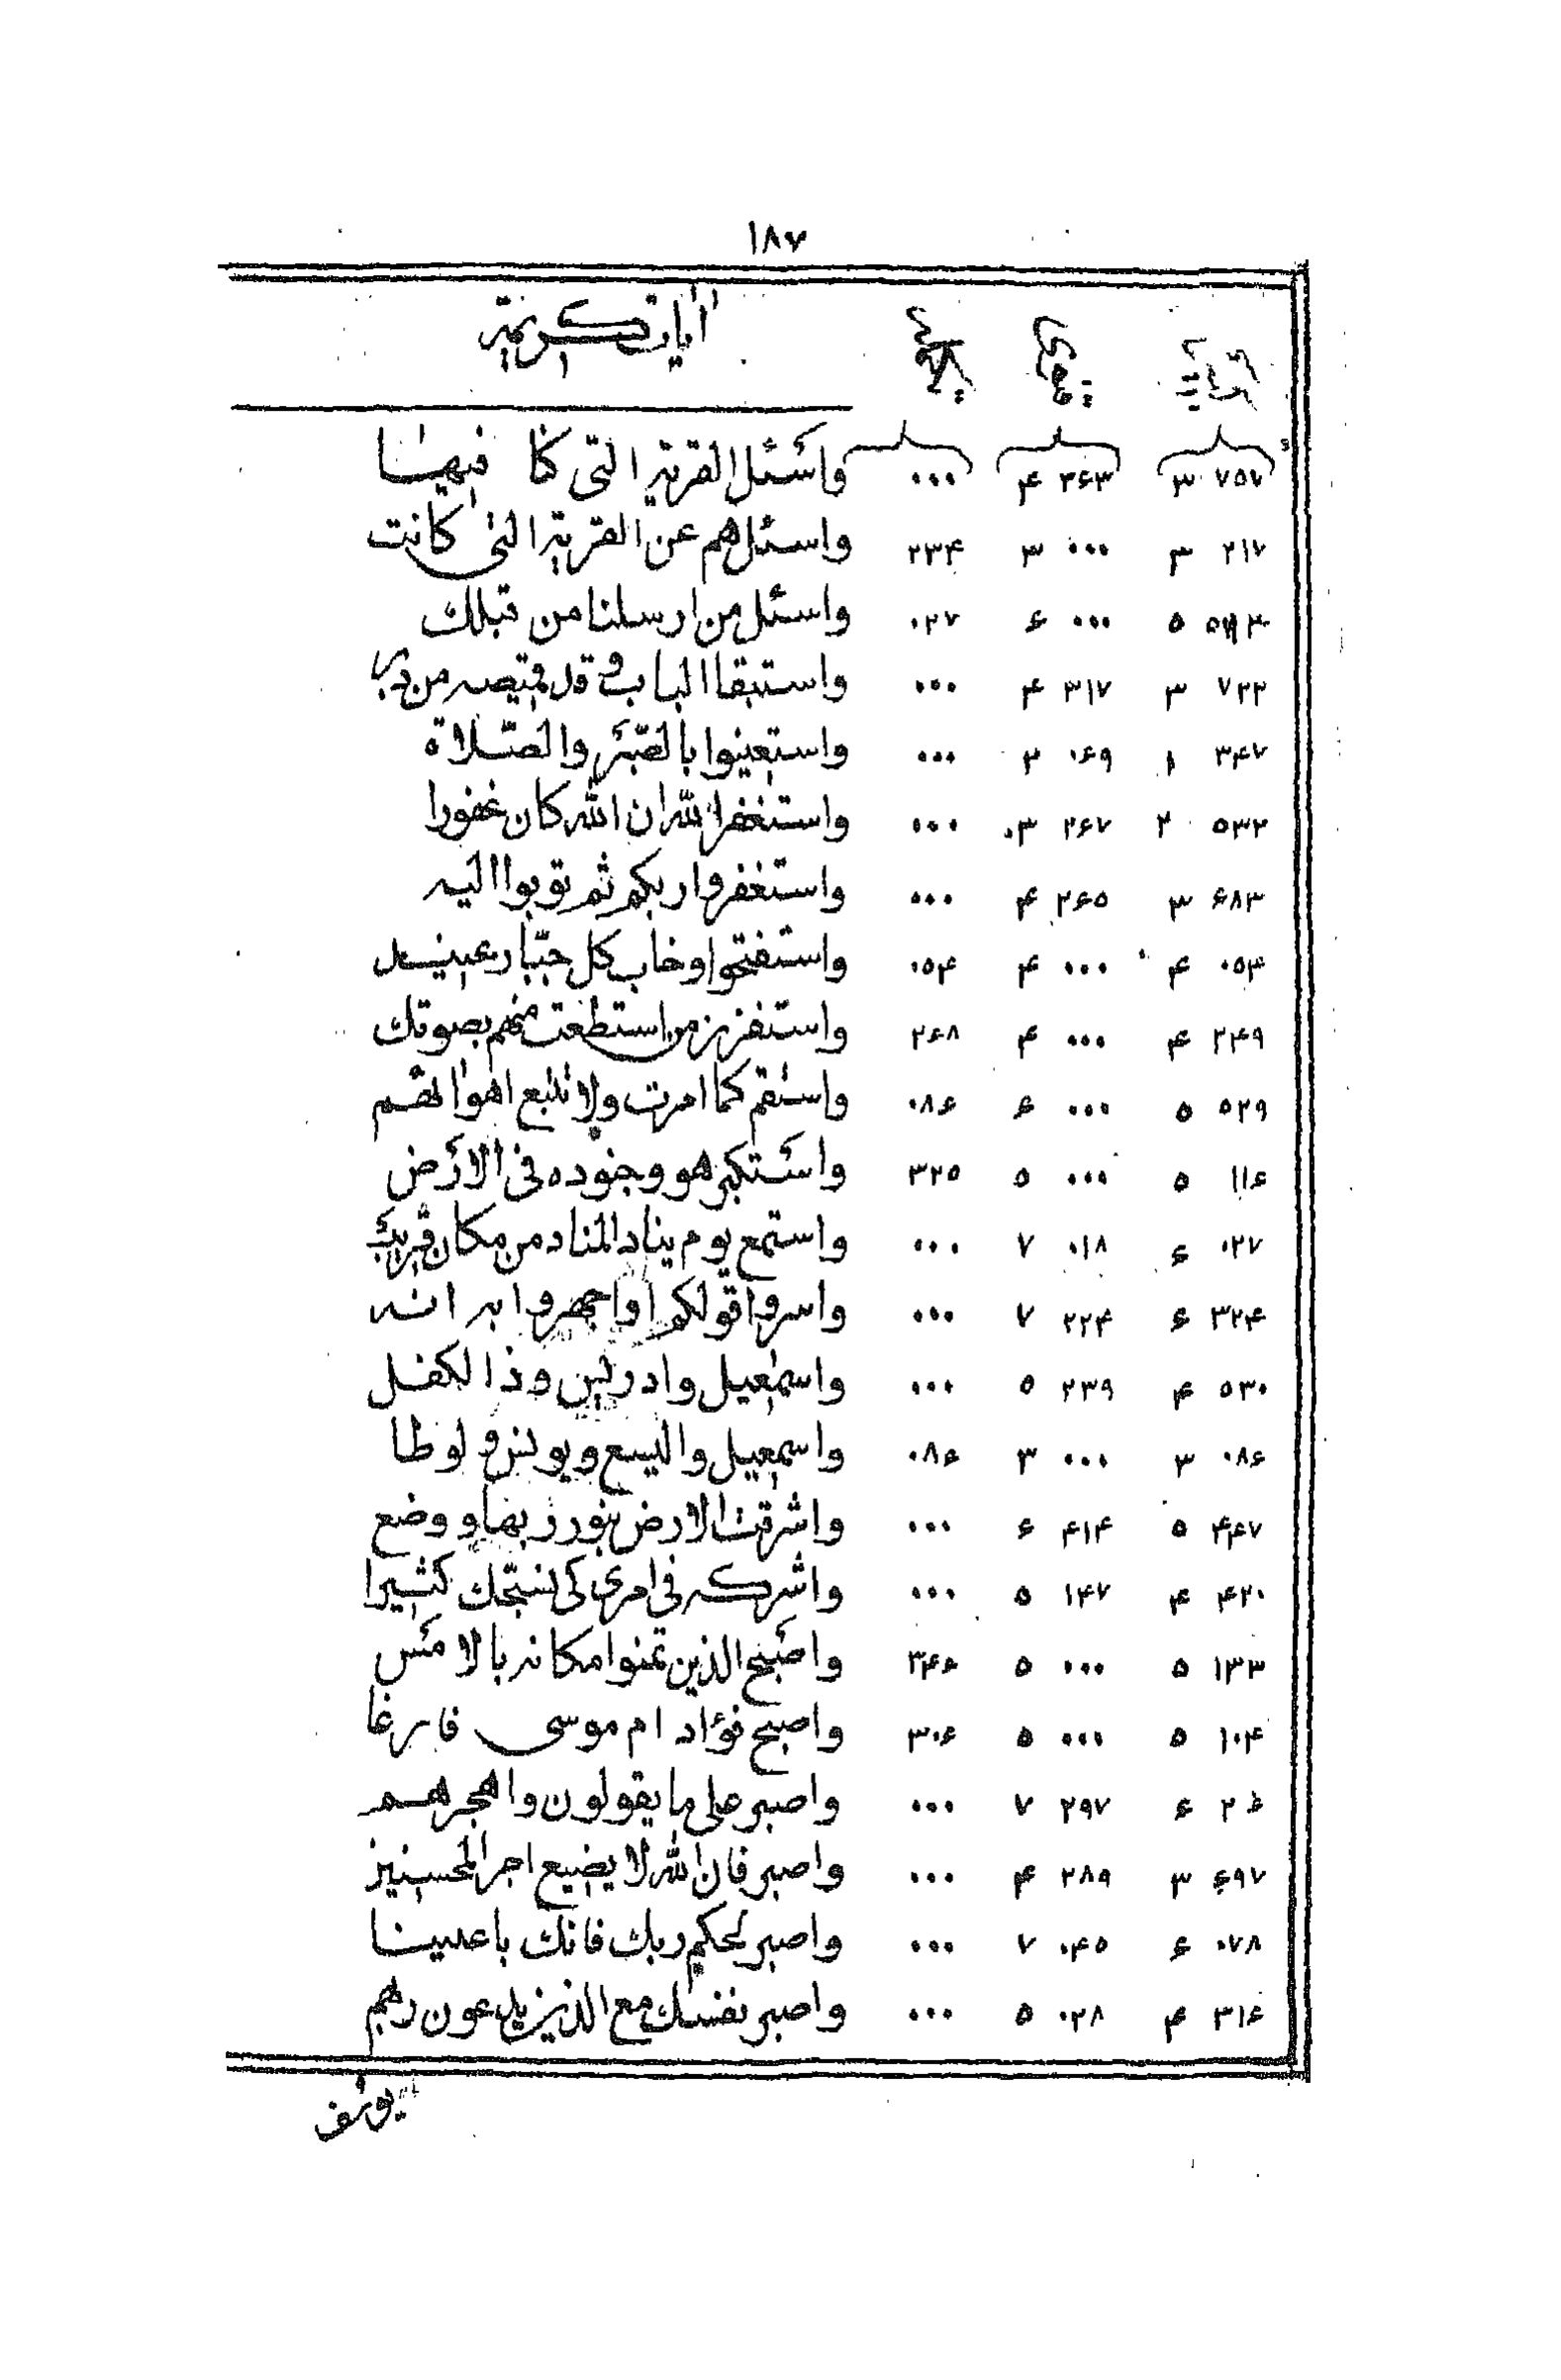 ١٨٧
آيات كريمة
٧٥٧ ٣ ٣٦٣ ۴ ٠٠٠ واسئل القرية التى كنا فيها
٢١٧ ٣ ٠٠٠ ٣ ٢٣۴ واسئلهم عن القرية التى كانت
٥ ٠٠٠ ۶ ٠٢٧ واسئل من ارسلنا من قبلك
٧٢٢ ٣ ٣١٧ ۴ ٠٠٠ واستبقا الباب وقدت قميصه من دبر
٣۴٧ ١ ٠۶٩ ٢ ٠٠٠ واستعينوا بالصبر والصلاة
٥٣٢ ٢ ٢۶٧ ٣ ٠٠٠ واستغفر الله ان الله كان غفورا
۶٨٣ ٣ ٢۶٥ ۴ ٠٠٠ واستغفروا ربكم ثم توبوا اليه
٠٥۴ ۴ ٠٠٠ ۴ ٠٥۴ واستفتحوا وخاب كل جبّار عنيد
٢۴٩ ۴ ٠٠٠ ۴ ٢۶٨ واستفزز من استطعت منهم بصوتك
٥٢٩ ٥ ٠٠٠ ۶ ٠٨۶ واستقم كما امرت ولا تتبع اهوائهم
١١۶ ٥ ٠٠٠ ٥ ٣٢٥ واستكبر هو وجنوده فى الارض
٠٢٧ ۶ ٠١٨ ٧ ٠٠٠ واستمع يوم يناد المناد من مكان قريب
٣٢۴ ۶ ٢٢۴ ٧ ٠٠٠ واسروا قولكم اواجهروا به انه
٥٣٠ ۴ ٢٣٩ ٥ ٠٠٠ واسمعيل وادريس وذا الكفل
٠٨۶ ٣ ٠٠٠ ٣ ٠٨۶ واسمعيل واليسع ويونس ولوطا
۴۴٧ ٥ ۴١۴ ۶ ٠٠٠ واشرقت الارض بنور ربها ووضع
۴٢٠ ۴ ١۴٧ ٥ ٠٠٠ واشركه فى امرى كى نسبّحك كثيرا
١٣٣ ٥ ٠٠٠ ٥ ٣۴۶ واصبح الذين تمنوا مكانه بالامس
١٠۴ ٥ ٠٠٠ ٥ ٣٠۶ واصبح فؤاد ام موسى فارغا
۶ ٢٩٧ ٧ ٠٠٠ واصبر على ما يقولون واهجرهم
۶٩٧ ٣ ٢٨٩ ۴ ٠٠٠ واصبر فان الله لا يضيع اجر المحسنين
٠٧٨ ۶ ٠۴٥ ٧ ٠٠٠ واصبر لحكم ربك فانك باعيننا
٣١۶ ۴ ٠٢٨ ٥ ٠٠٠ واصبر نفسك مع الذين يدعون ربهم
يوسف